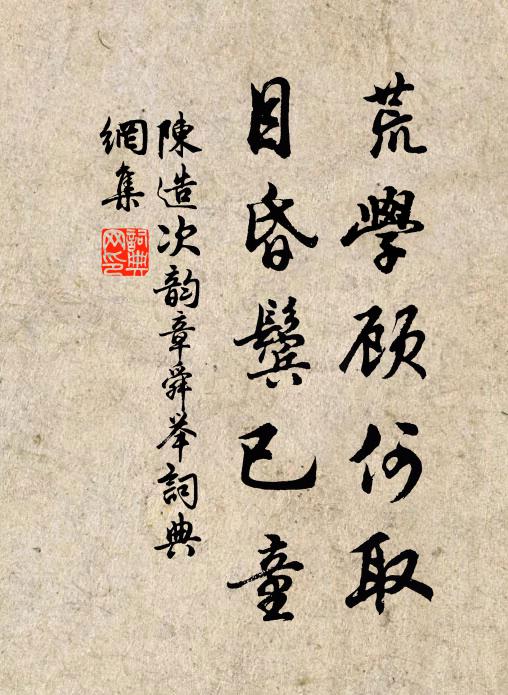 荒學顧何取
目昏鬢已童
陳造次韵章舜举詞典
網集
詞典
网印